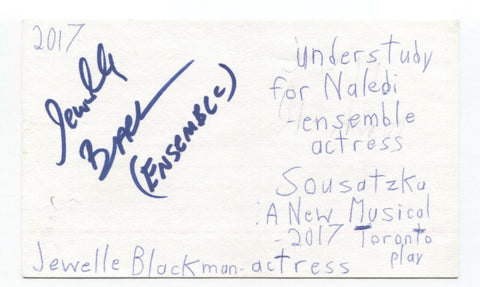 2017
Jewelle
(ENSEMBLE)
understudy
for Naledi
-ensemble
actress
Sousatzka
:A New Musical
-2017 Toronto
play
Jewelle Blackman-actress